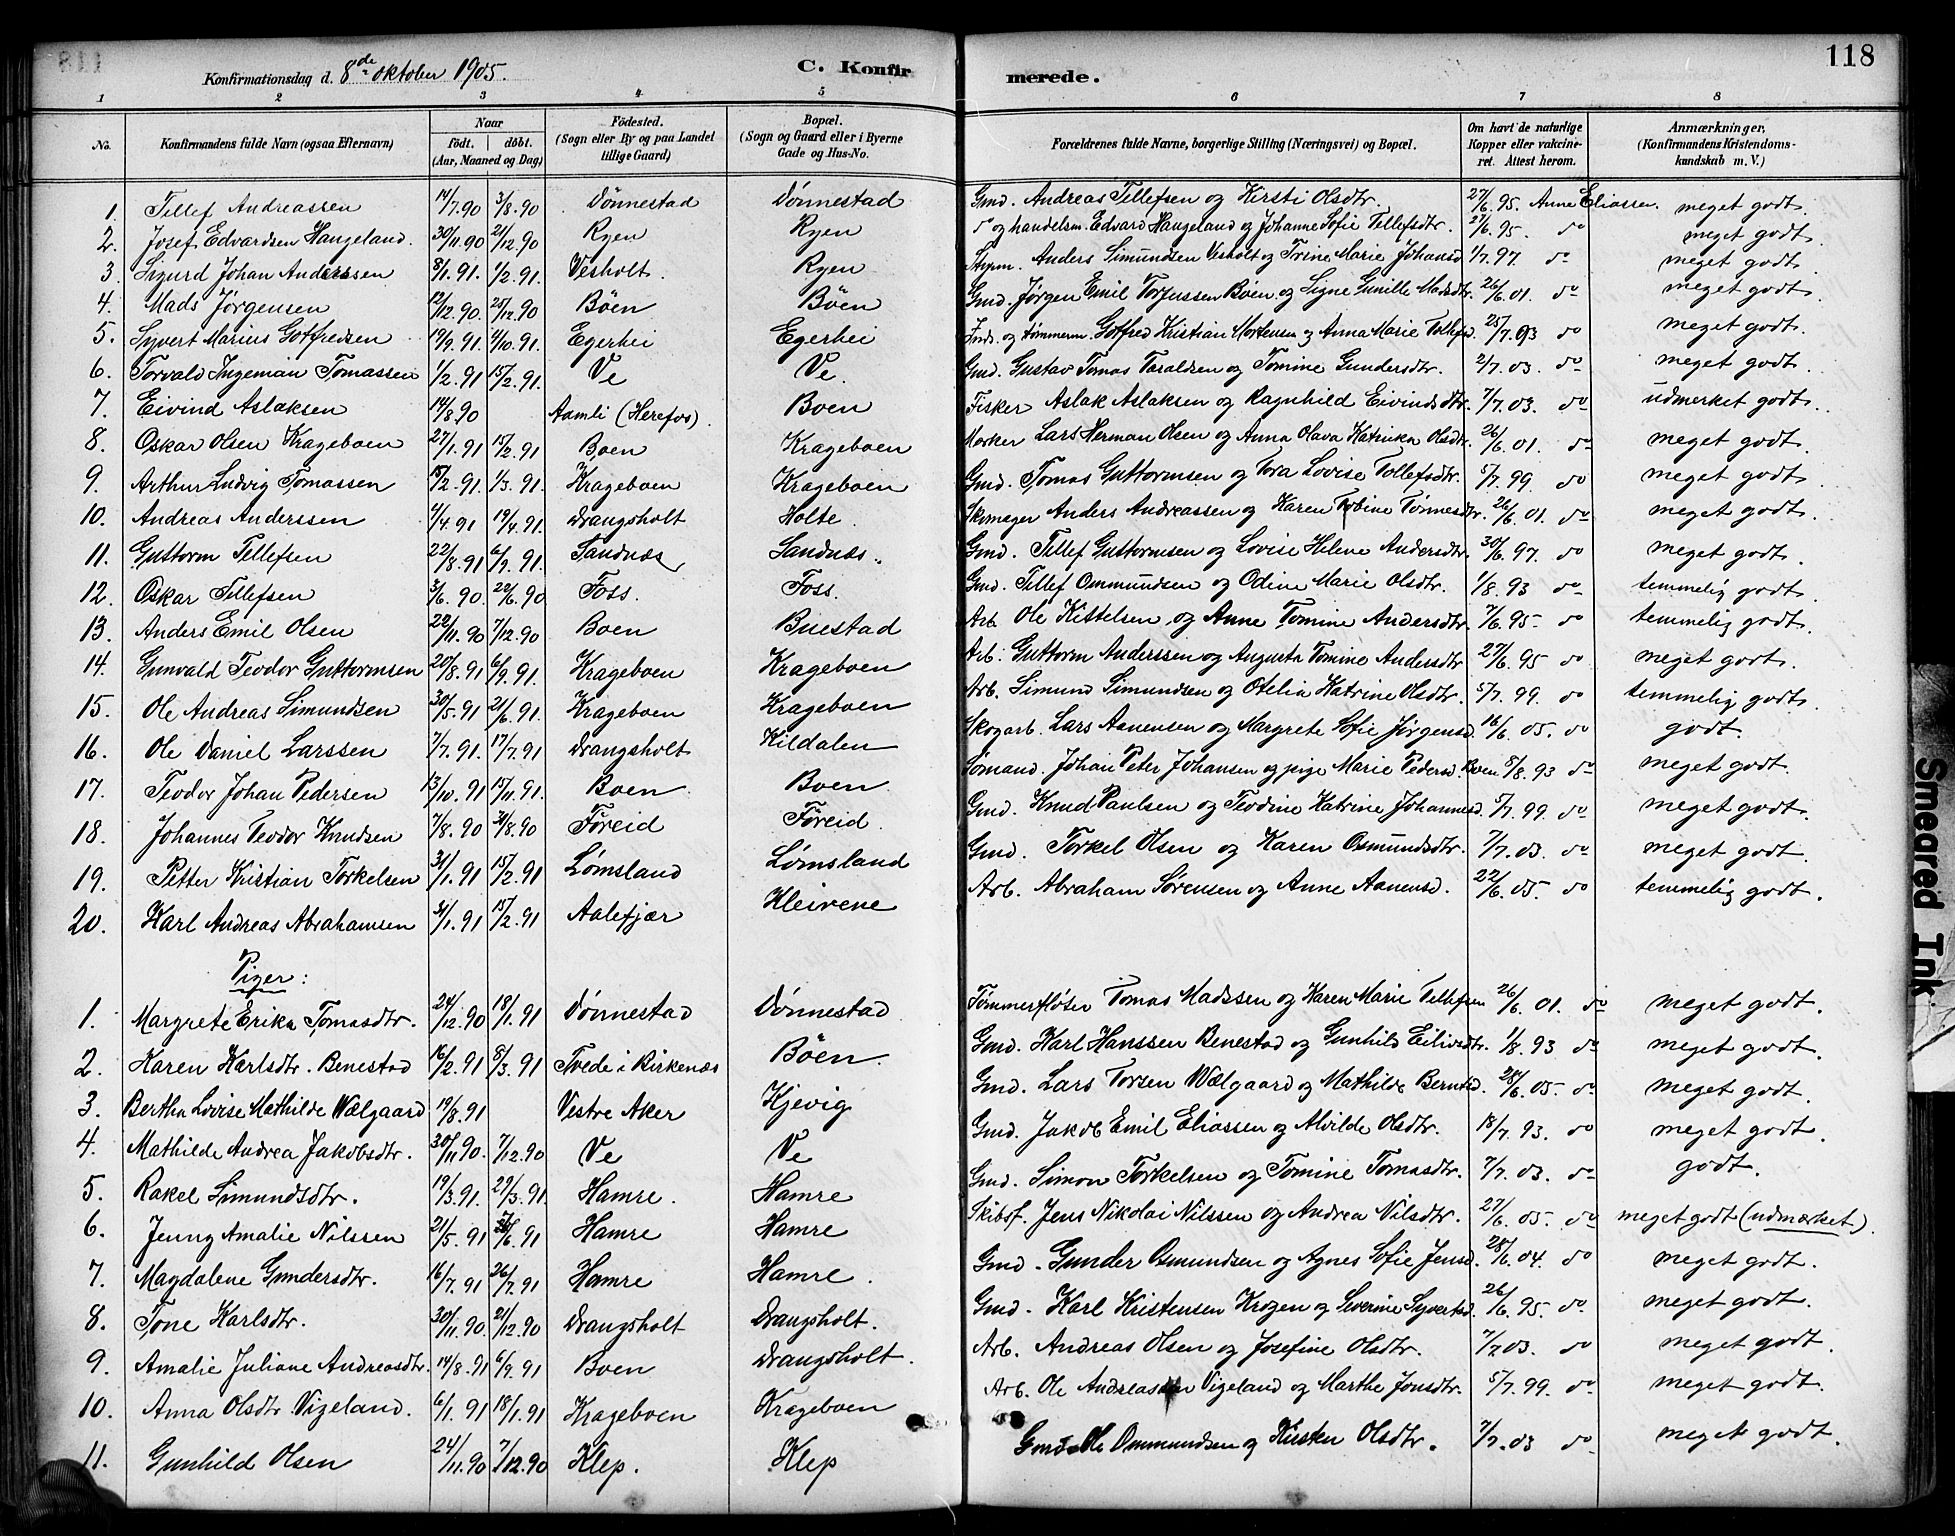 118
Konfirmationsdag d. 8de oktober 1905. C. Konfirmerede.
1 2 3 4 5 6 7 8
No. Konfirmandens fulde Navn (ogsaa Efternavn) Naar födt. döbt. (Aar, Maaned og Dag) Födested. (Sogn eller By og paa Landet tillige Gaard) Bopæl. (Sogn og Gaard eller i Byerne Gade og Hus-No. Forældrenes fulde Navne, borgerlige Stilling (Næringsvei) og Bopæl. Om havt de naturlige Kopper eller vakcineret. Attest herom. Anmærkninger, (Konfirmandens Kristendomskundskab m. V.)
1. Tellef Andreassen 14/7.90 3/8.90 Dönnestad Dönnestad Gmd. Andreas Tellefsen og Kirsti Olsdtr. 27/6.95. Anne Eliassen. meget godt.
2. Josef Edvardsen Haugeland. 30/11.90 21/12.90 Ryen Ryen do og handelsm. Edvard Haugeland og Johanne Sofie Tellefsdtr. 27/6.95. do meget godt.
3. Sigurd Johan Anderssen 8/1.91. 1/2.91. Vesholt. Ryen Styrm. Anders Simundsen Vesholt og Trine Marie Johansd 1/7.97. do meget godt.
4. Mads Jörgensen 12/12.90. 25/12.90 Böen Böen Gmd. Jörgen Emil Torjussen Böen og Signe Gunille Madsdtr. 26/6.01. do meget godt.
5. Syvert Marius Gotfredsen 19/9.91. 4/10.91. Egerhei Egerhei Inds. og tömmerm Gotfred Kristian Mortensen og Anna Marie Tellefsd. 25/7.93 do meget godt.
6. Torvald Ingeman Tomassen 1/2.91 15/2.91. Ve Ve. Gmd. Gustav Tomas Taraldsen og Tomine Gundersdtr. 2/7.03. do meget godt.
7. Eivind Aslaksen 14/8.90 Aamli (Herefos). Boen Fisker Aslak Aslaksen og Ragnhild Eivindsdtr. 7/7.03. do udmerket godt.
8. Oskar Olsen Krageboen 27/1.91 15/2.91 Boen Krageboen Lars Herman Olsen og Anna Olava Katrinka Olsdtr. 26/6.01. do meget godt.
9. Arthur Ludvig Tomassen 15/2.91. 1/3.91. Krageboen Krageboen Gmd. Tomas Guttormsen og Tora Lovise Tollefsdtr. 5/7.99. do meget godt.
10. Andreas Anderssen 7/4.91 19/4.91. Drangsholt Holte. Skomager Anders Andreassen og Karen Tobine Tönnesdtr. 26/6.01. do meget godt.
11. Guttorm Tellefsen 22/8.91 6/9.91. Sandnæs Sandnæs. Gmd. Tellef Guttormsen og Lovise Helene Andersdtr. 30/6.97. do meget godt.
12. Oskar Tellefsen 3/6.90. 22/6.90 Foss. Foss. Gmd. Tellef Ommundsen og Odine Marie Olsdtr. 1/8.93 do temmelig godt.
13. Anders Emil Olsen 22/11.90 7/12.90 Boen Buestad Arb. Ole Kittelsen og Anne Tomine Andersdtr. 7/6.95- do temmelig godt.
14. Gunvald Teodor Guttormsen 20/8.91 6/9.91. Krageboen Krageboen Arb. Guttorm Anderssen og Augusta Tomine Andersdtr 27/6.95 do meget godt.
15. Ole Andreas Simundsen 30/5.91 21/6.91. Krageboen Krageboen Arb. Simund Simundsen og Otelia Katrine Olsdtr. 5/7.99. do temmelig godt.
16. Ole Daniel Larssen 7/7.91. 17/7.91 Drangsholt Kildalen Skogarb. Lars Aanensen og Margrete Sofie Jörgensd. 16/6.05. do godt.
17. Teodor Johan Pedersen 13/10.91 15/11.91. Boen. Boen Sömand. Johan Peter Johansen og pige Marie Pedersd. Boen 8/8.93 do meget godt.
18. Johannes Teodor Knudsen 7/8.90 31/8.90 Föreid Föreid. Gmd. Knud Paulsen og Teodine Katrine Johannesd. 5/7.99. do meget godt.
19. Petter Kristian Torkelsen 31/1.91 15/2.91 Lömsland Lömsland Gmd. Torkel Olsen og Karen Osmundsdtr. 7/7.03. do meget godt.
20. Karl Andreas Abrahamsen 31/1.91 15/2.91 Aalefjær Kleivene Arb. Abraham Sörensen og Anne Aanensd. 22/6.05. do temmelig godt.
Piger:
1. Margrete Erika Tomasdtr. 24/12.90 18/1.91 Dönnestad Dönnestad Tömmerflöter Tomas Madssen og Karen Marie Tellefsen 26/6.01. do meget godt.
2. Karen Karlsdtr. Benestad 16/2.91 8/3.91 Tvede i Birkenæs Böen. Gmd. Karl Hanssen Benestad og Gunhild Eilivsdtr. 1/8.93 do meget godt.
3. Bertha Lovise Mathilde Wælgaard 19/8.91 Vestre Aker Kjevig Gmd. Lars Torsen Wælgaard og Mathilde Berntsd. 28/6.05. do meget godt.
4. Mathilde Andrea Jakobsdtr. 30/11.90. 7/12.90 Ve Ve Gmd. Jakob Emil Eliassen og Alvilde Olsdtr. 18/7.93. do meget godt.
5. Rakel Simundsdtr. 19/3.91. 29/3.91 Hamre. Hamre Gmd. Simon Torkelsen og Tomine Tomasdtr. 7/7.03. do godt.
6. Jenny Amalie Nilssen 21/5.91 /6.91 Hamre Hamre Skibsf. Jens Nikolai Nilssen og Andrea Nilsdtr. 27/6.05. do meget godt (udmærket).
7. Magdalene Gundersdtr. 16/7.91 26/7.91 Hamre Hamre. Gmd. Gunder Osmundsen og Agnes Sofie Jensd. 28/6.04. do meget godt.
8. Tone Karlsdtr. 30/11.90 21/12.90 Drangsholt Drangsholt. Gmd. Karl Kristensen Krogen og Severine Syvertsd. 26/6.95 do meget godt.
9. Amalie Juliane Andreasdtr. 14/8.91 6/9.91 Boen Drangsholt. Arb. Andreas Olsen og Josefine Olsdtr. 7/7.03. do meget godt.
10. Anna Olsdtr. Vigeland. 6/1.91 18/1.91 Krageboen Krageboen Arb. Ole Andreassen Vigeland og Marthe Jonsdtr. 5/7.99. do meget godt.
11. Gunhild Olsen 24/11.90 7/12.90 Klep. Klep Gmd. Ole Ommundsen og Kirsten Olsdtr. 7/7.03 do meget godt.
Smeared Ink